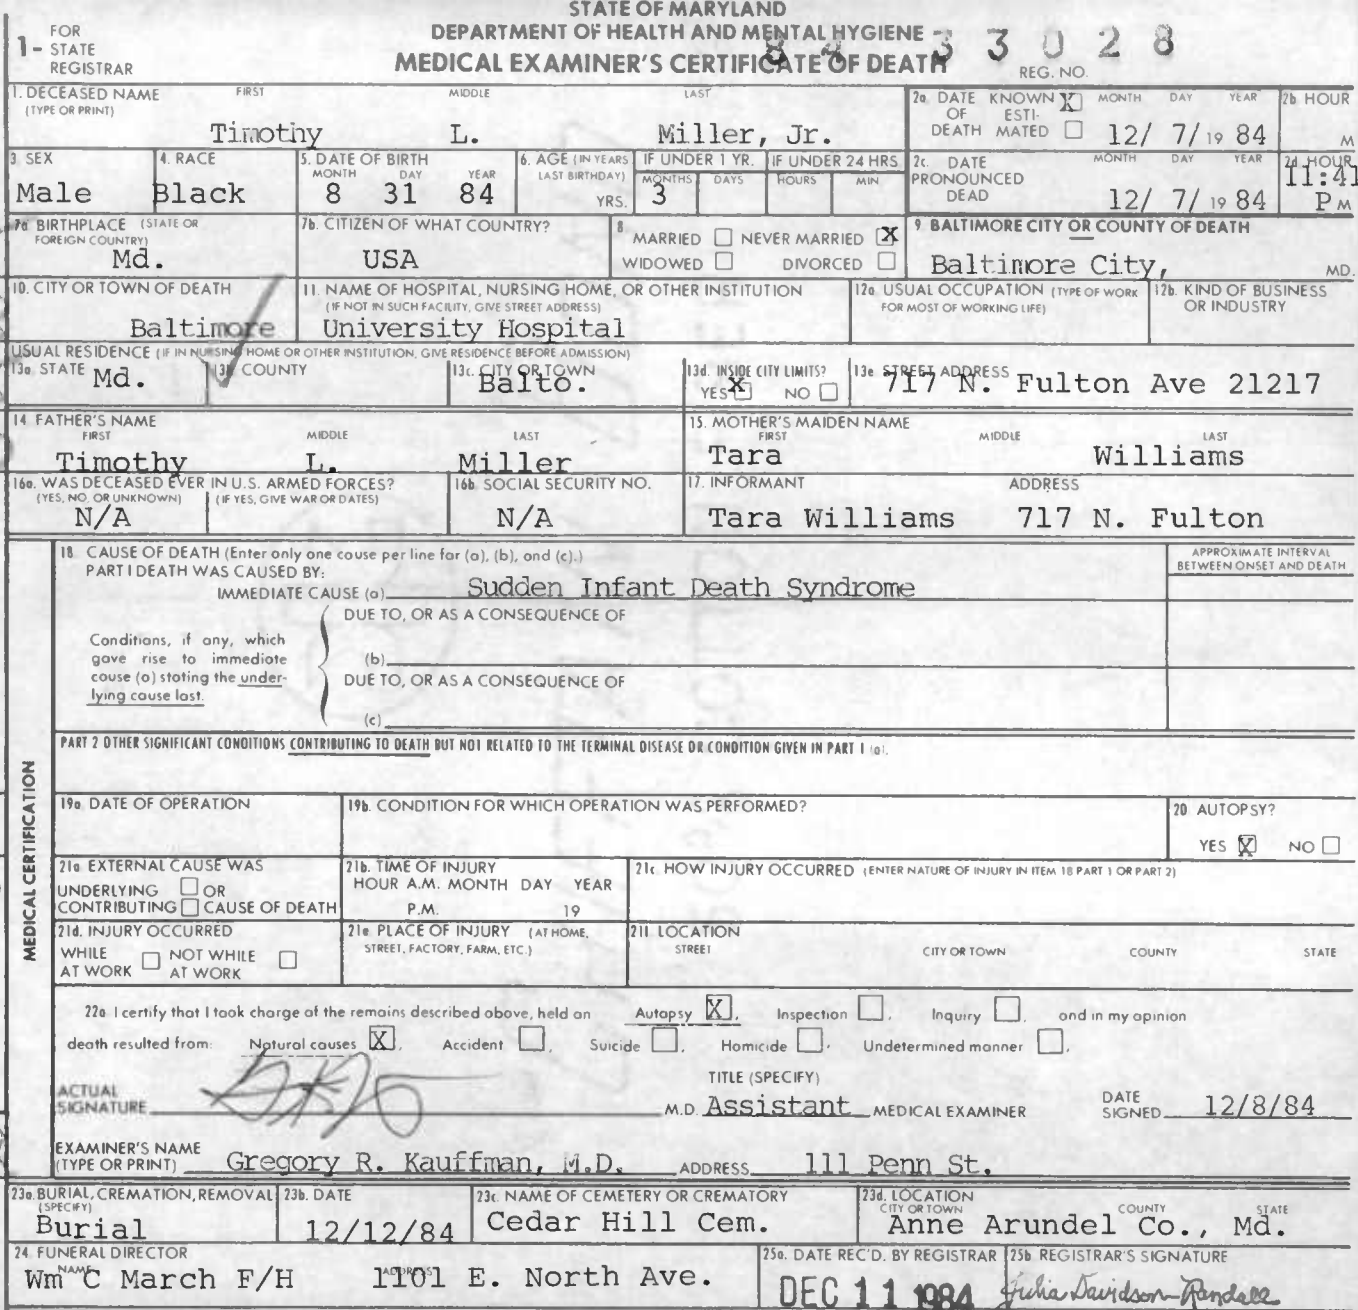 STATE OF MARYLAND
DEPARTMENT OF HEALTH AND MENTAL HYGIENE
MEDICAL EXAMINER'S CERTIFICATE OF DEATH
1- FOR STATE REGISTRAR
84 33028
REG. NO.
1. DECEASED NAME (TYPE OR PRINT) FIRST MIDDLE LAST
Timothy L. Miller, Jr.
2a. DATE OF DEATH KNOWN X ESTIMATED MONTH DAY YEAR
12/ 7/19 84
2b. HOUR M
3. SEX
Male
4. RACE
Black
5. DATE OF BIRTH MONTH DAY YEAR
8 31 84
6. AGE (IN YEARS LAST BIRTHDAY) YRS.
IF UNDER 1 YR. MONTHS DAYS
3
IF UNDER 24 HRS. HOURS MIN
2c. DATE PRONOUNCED DEAD MONTH DAY YEAR
12/ 7/19 84
2d. HOUR
11:41 P M
7a. BIRTHPLACE (STATE OR FOREIGN COUNTRY)
Md.
7b. CITIZEN OF WHAT COUNTRY?
USA
8. MARRIED NEVER MARRIED X
WIDOWED DIVORCED
9. BALTIMORE CITY OR COUNTY OF DEATH
Baltimore City, MD.
10. CITY OR TOWN OF DEATH
Baltimore
11. NAME OF HOSPITAL, NURSING HOME, OR OTHER INSTITUTION
(IF NOT IN SUCH FACILITY, GIVE STREET ADDRESS)
University Hospital
12a. USUAL OCCUPATION (TYPE OF WORK FOR MOST OF WORKING LIFE)
12b. KIND OF BUSINESS OR INDUSTRY
USUAL RESIDENCE (IF IN NURSING HOME OR OTHER INSTITUTION, GIVE RESIDENCE BEFORE ADMISSION)
13a. STATE
Md.
13b. COUNTY
13c. CITY OR TOWN
Balto.
13d. INSIDE CITY LIMITS?
YES X NO
13e. STREET ADDRESS
717 N. Fulton Ave 21217
14. FATHER'S NAME FIRST MIDDLE LAST
Timothy L. Miller
15. MOTHER'S MAIDEN NAME FIRST MIDDLE LAST
Tara Williams
16a. WAS DECEASED EVER IN U.S. ARMED FORCES?
(YES, NO, OR UNKNOWN) (IF YES, GIVE WAR OR DATES)
N/A
16b. SOCIAL SECURITY NO.
N/A
17. INFORMANT ADDRESS
Tara Williams 717 N. Fulton
MEDICAL CERTIFICATION
18. CAUSE OF DEATH (Enter only one cause per line for (a), (b), and (c).)
PART I DEATH WAS CAUSED BY:
APPROXIMATE INTERVAL BETWEEN ONSET AND DEATH
IMMEDIATE CAUSE (a) Sudden Infant Death Syndrome
DUE TO, OR AS A CONSEQUENCE OF
Conditions, if any, which
gave rise to immediate
cause (a) stating the under-
lying cause last.
(b)
DUE TO, OR AS A CONSEQUENCE OF
(c)
PART 2 OTHER SIGNIFICANT CONDITIONS CONTRIBUTING TO DEATH BUT NOT RELATED TO THE TERMINAL DISEASE OR CONDITION GIVEN IN PART I (a).
19a. DATE OF OPERATION
19b. CONDITION FOR WHICH OPERATION WAS PERFORMED?
20. AUTOPSY?
YES X NO
21a. EXTERNAL CAUSE WAS
UNDERLYING OR
CONTRIBUTING CAUSE OF DEATH
21b. TIME OF INJURY
HOUR A.M. MONTH DAY YEAR
P.M. 19
21c. HOW INJURY OCCURRED (ENTER NATURE OF INJURY IN ITEM 18 PART 1 OR PART 2)
21d. INJURY OCCURRED
WHILE AT WORK NOT WHILE AT WORK
21e. PLACE OF INJURY (AT HOME, STREET, FACTORY, FARM, ETC.)
21f. LOCATION
STREET CITY OR TOWN COUNTY STATE
22a. I certify that I took charge of the remains described above, held an Autopsy X, Inspection , Inquiry , and in my opinion
death resulted from: Natural causes X, Accident , Suicide , Homicide , Undetermined manner .
ACTUAL SIGNATURE
M.D.
TITLE (SPECIFY)
Assistant MEDICAL EXAMINER
DATE SIGNED 12/8/84
EXAMINER'S NAME (TYPE OR PRINT) Gregory R. Kauffman, M.D. ADDRESS 111 Penn St.
23a. BURIAL, CREMATION, REMOVAL (SPECIFY)
Burial
23b. DATE
12/12/84
23c. NAME OF CEMETERY OR CREMATORY
Cedar Hill Cem.
23d. LOCATION CITY OR TOWN COUNTY STATE
Anne Arundel Co., Md.
24. FUNERAL DIRECTOR
NAME ADDRESS
Wm C March F/H 1101 E. North Ave.
25a. DATE REC'D. BY REGISTRAR
DEC 11 1984
25b. REGISTRAR'S SIGNATURE
Julia Davidson-Randall